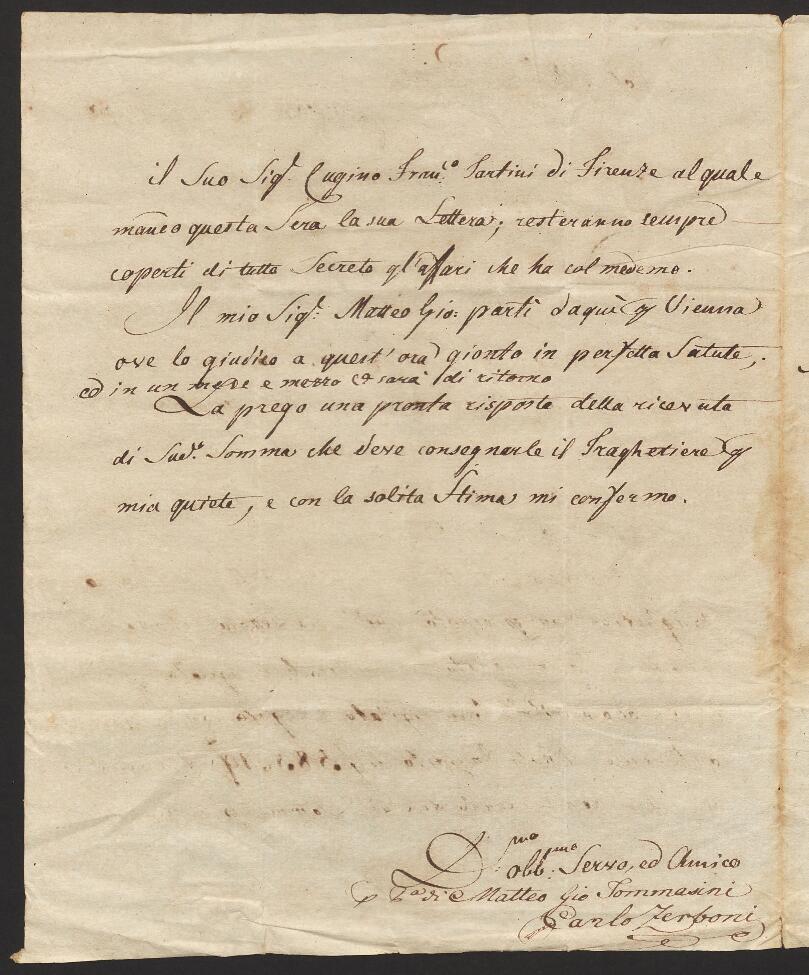 il Suo Sigr. Cugino Franco. Tartini di Firenze al quale
mando questa Sera la sua Lettera; resteranno sempre
coperti di tutto Secreto gl'affari che ha col medemo.
Il mio Sigr. Matteo Gio: partì daquì p Vienna
ove lo giudico a quest'ora gionto in perfetta Salute,
ed in un mese e mezzo sarà di ritorno
La prego una pronta risposta della ricevuta
di Suda. Somma che deve consegnarle il Traghetiere p
mia quiete, e con la solita Stima mi confermo.
Dmo obbmo: Servo, ed Amico
di Matteo Gio Tommasini
Carlo Zerboni